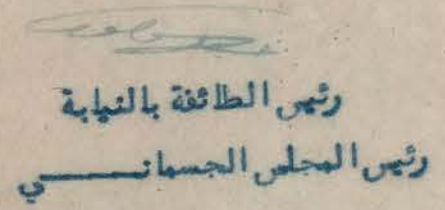 رئيس الطائفة بالنيابة
رئيس المجلس الجسمانــــــي